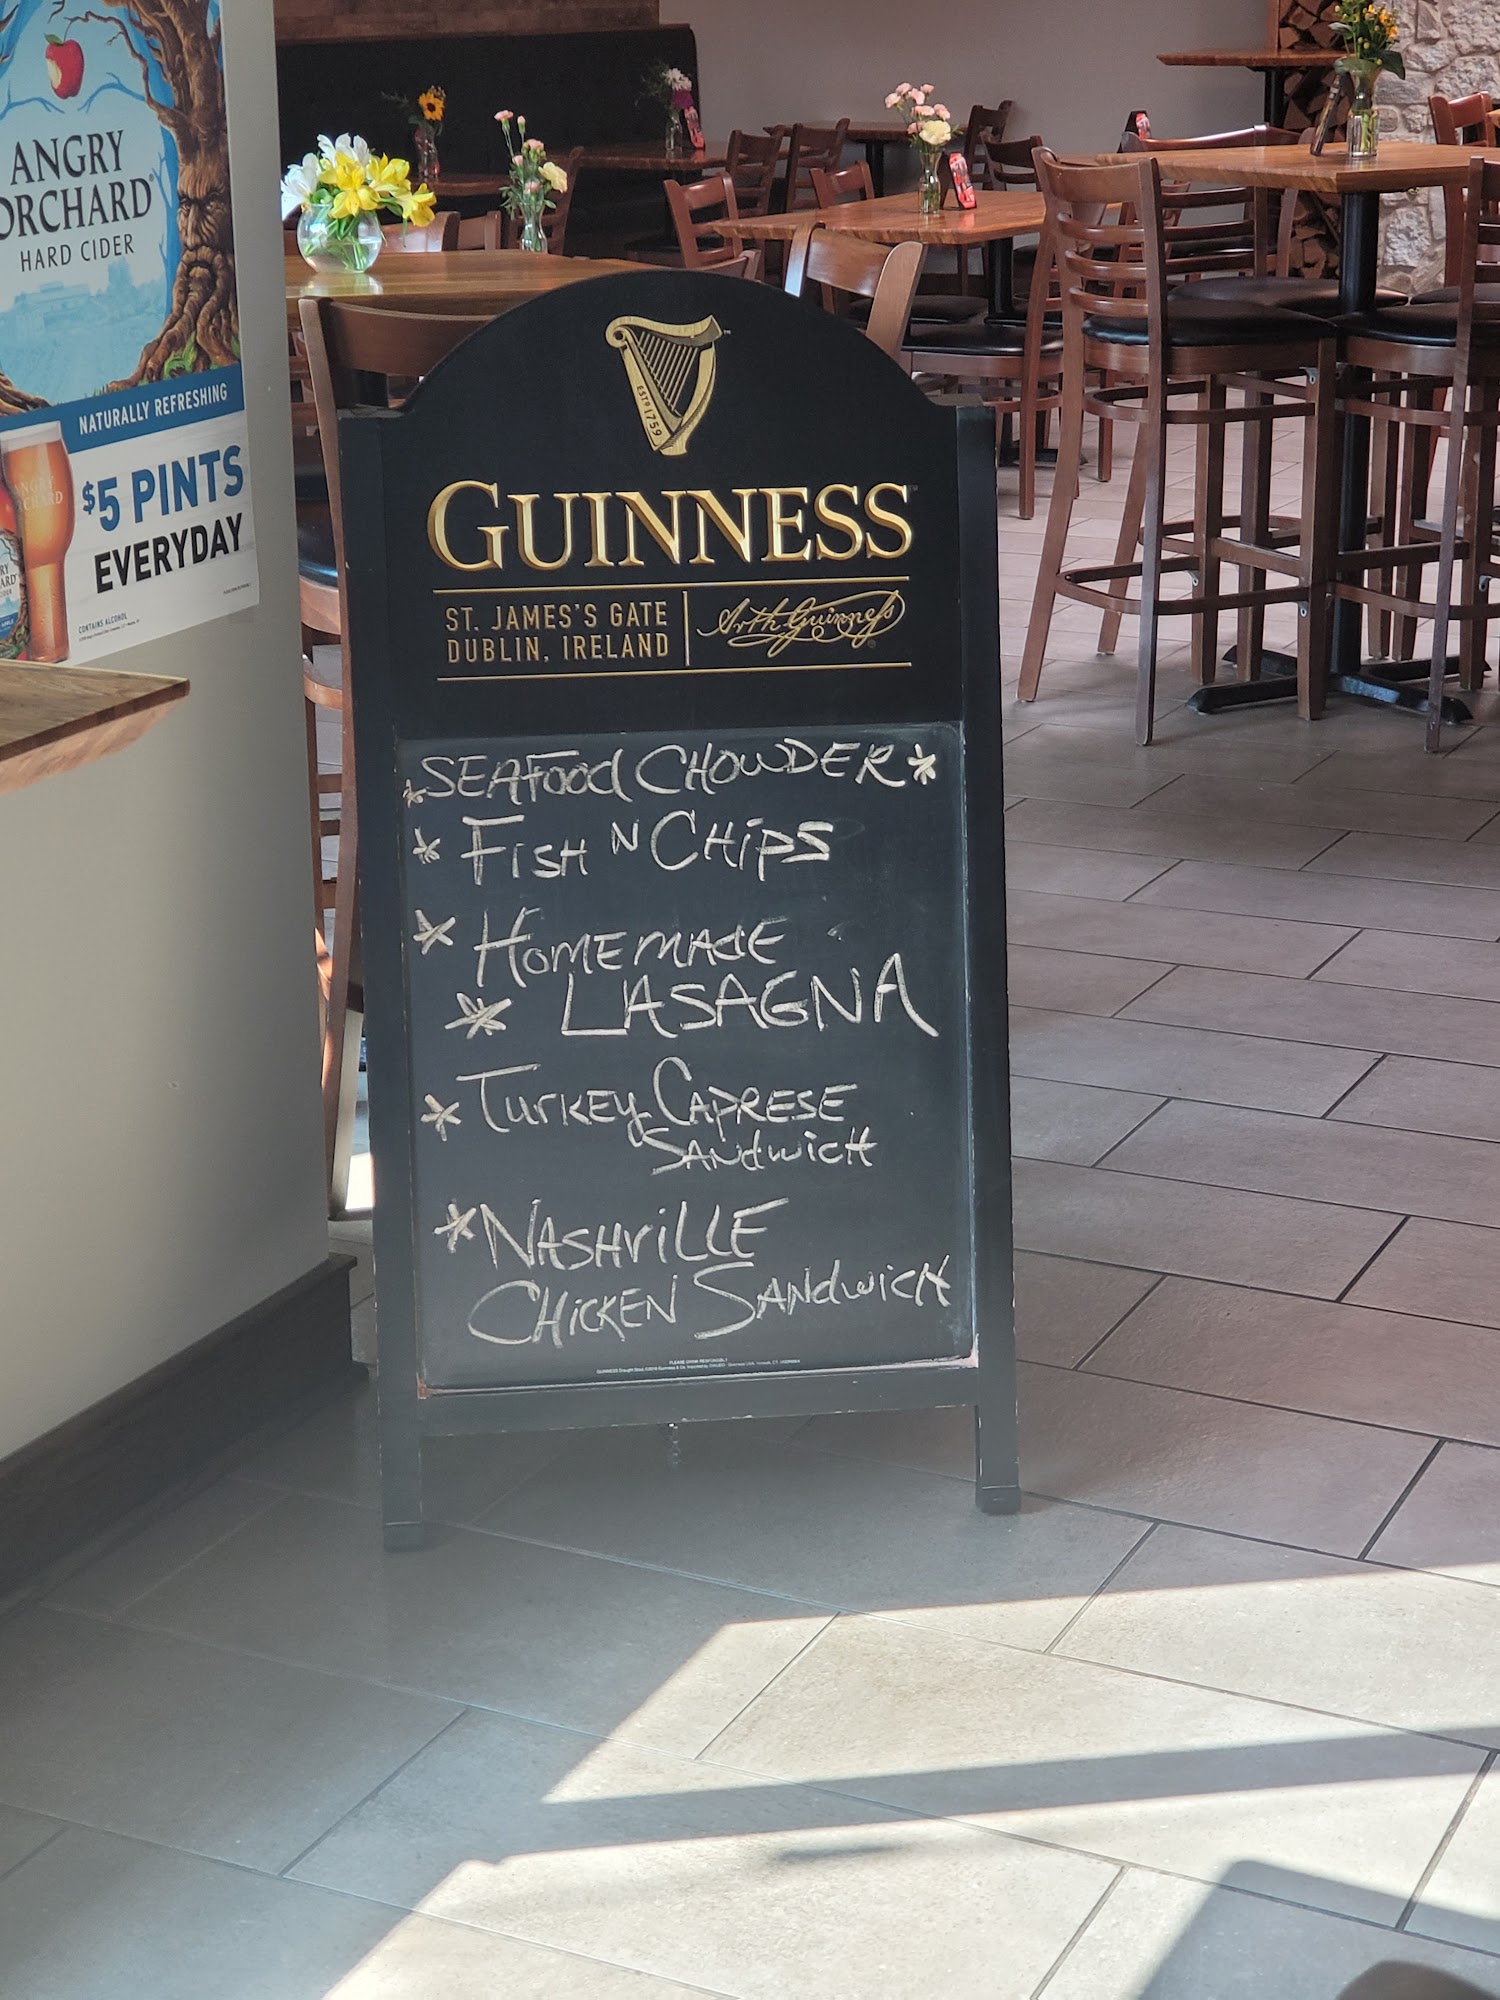 ANGRY
ORCHARD
HARD CIDER
NATURALLY REFRESHING
$5 PINTS
EVERYDAY
CONTAINS ALCOHOL
ESTD 1759
GUINNESS
ST. JAMES'S GATE
DUBLIN, IRELAND
Arth Guinness
*SEAFOOD CHOWDER*
* FISH N CHiPS
* HOMEMADE
* LASAGNA
* TURKEY CAPRESE
SANdwicH
*NASHViLLE
CHiCKEN SANdwicH
PLEASE DRINK RESPONSIBLY